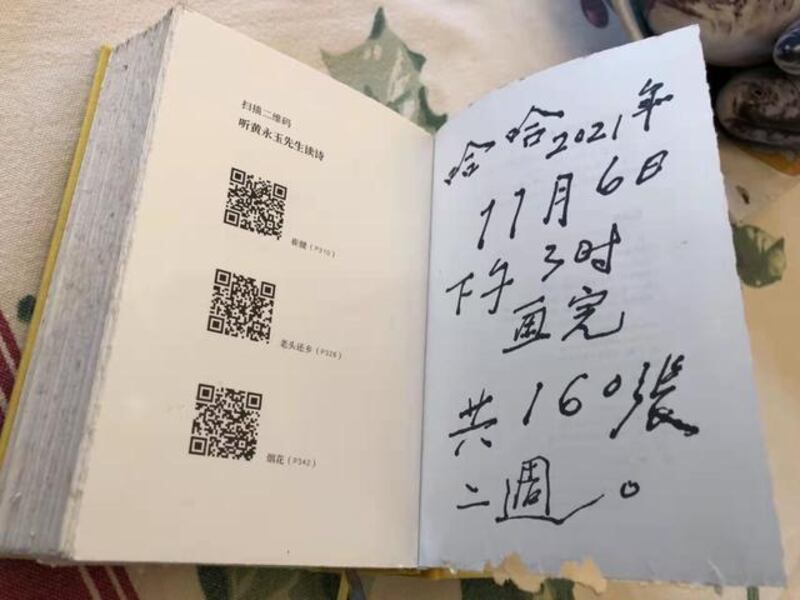 扫描二维码
听黄永玉先生读诗
崔健（P310）
老头还乡（P326）
烟花（P342）
哈哈2021年
11月6日
下午3时
画完
共160张
二週。